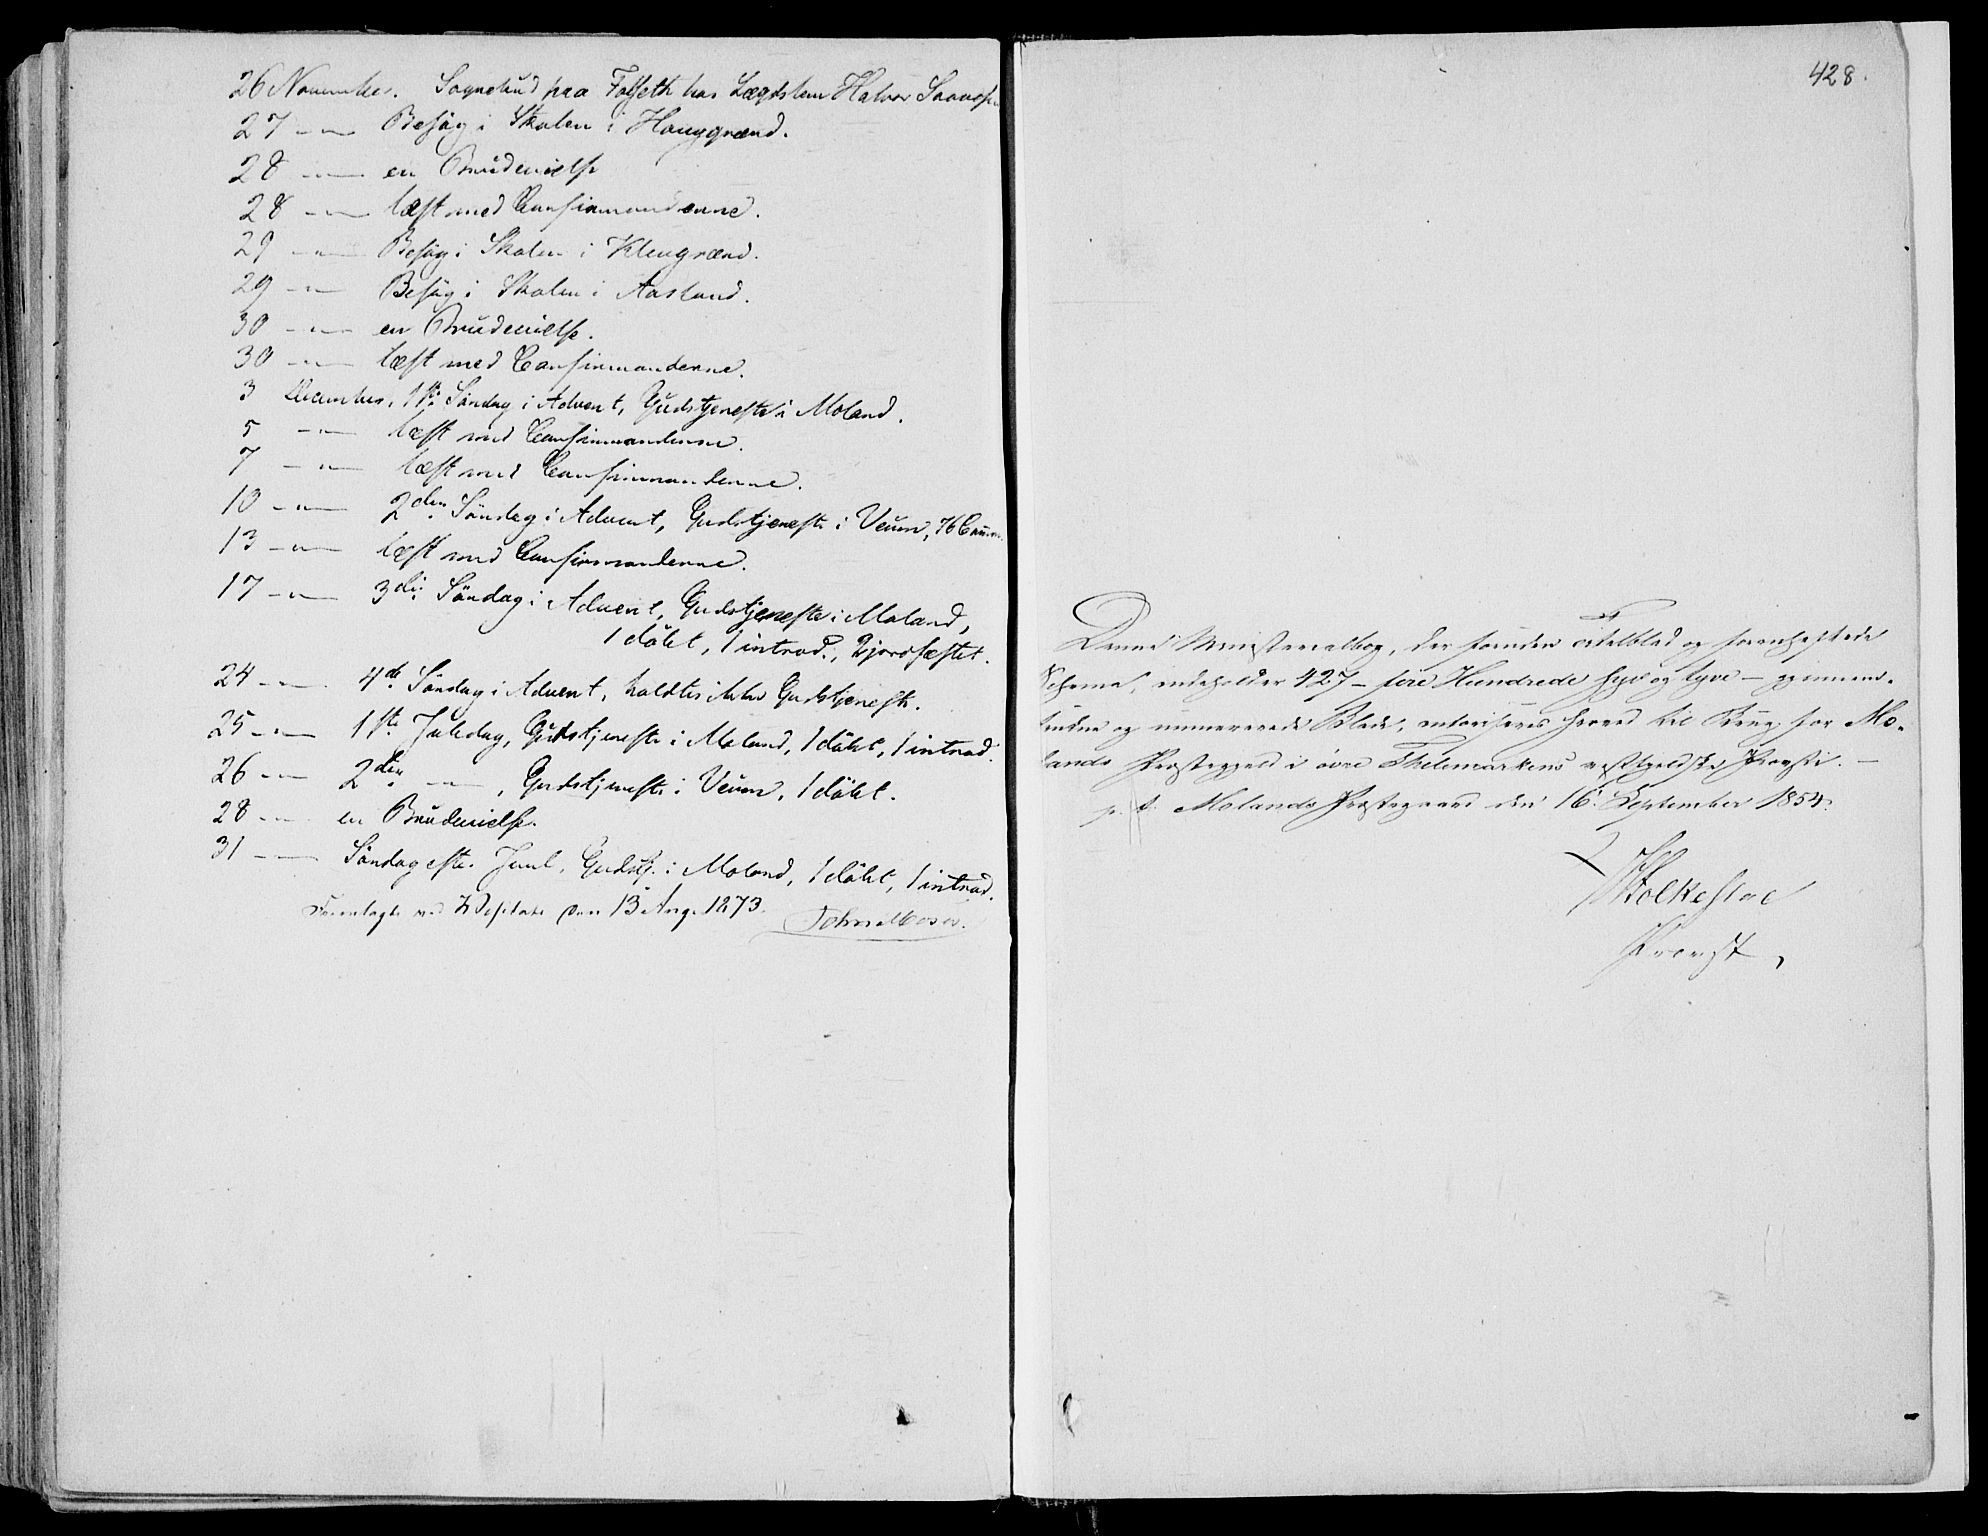 26 November. Sognebud paa Folseth hos Lægdslem Halvor
27 — " — Besøg i Skolen i Hauggrænd.
28 — " — en Brudevielse
28 — " — læst med Confirmanderne.
29 — " — Besøg i Skolen i Klevgrænd.
29 — " — Besøg i Skolen i Aasland.
30 — " — en Brudevielse.
30 — " — læst med Confirmanderne.
3 December, 1ste Söndag i Advent, Gudstjeneste i Moland.
5 — " — læst med Confirmanderne.
7 — " — læst med Confirmanderne.
10 — " — 2den Söndag i Advent, Gudstjeneste i Veum, 76 Comm.
13 — " — læst med Confirmanderne.
17 — " — 3die Söndag i Advent, Gudstjeneste i Moland,
1 döbt, 1 introd., 2 jordfæstet.
24 — " — 4de Söndag i Advent, holdtes ikke Gudstjeneste.
25 — " — 1ste Juledag, Gudstjeneste i Moland, 1 döbt, 1 introd.
26 — " — 2den — " —, Gudstjeneste i Veum, 1 döbt.
28 — " — en Brudevielse.
31 — " — Söndag efter Juul, Gudstj. i Moland, 1 döbt, 1 introd.
Fremlagt ved Visitats den 13 Aug. 1873.
428.
Denne Ministerialbog, der foruden Titelblad og foranheftede
Schema, indeholder 427 – fire Hundrede syv og tyve – gjennem-
dragne og numererede Blade, autoriseres herved til Brug for Mo-
lands Præstegjeld i övre Thelemarkens vestfjeldske Provsti. —
p. t. Molands Præstegaard den 16 September 1854.
Folkestad
Provst,